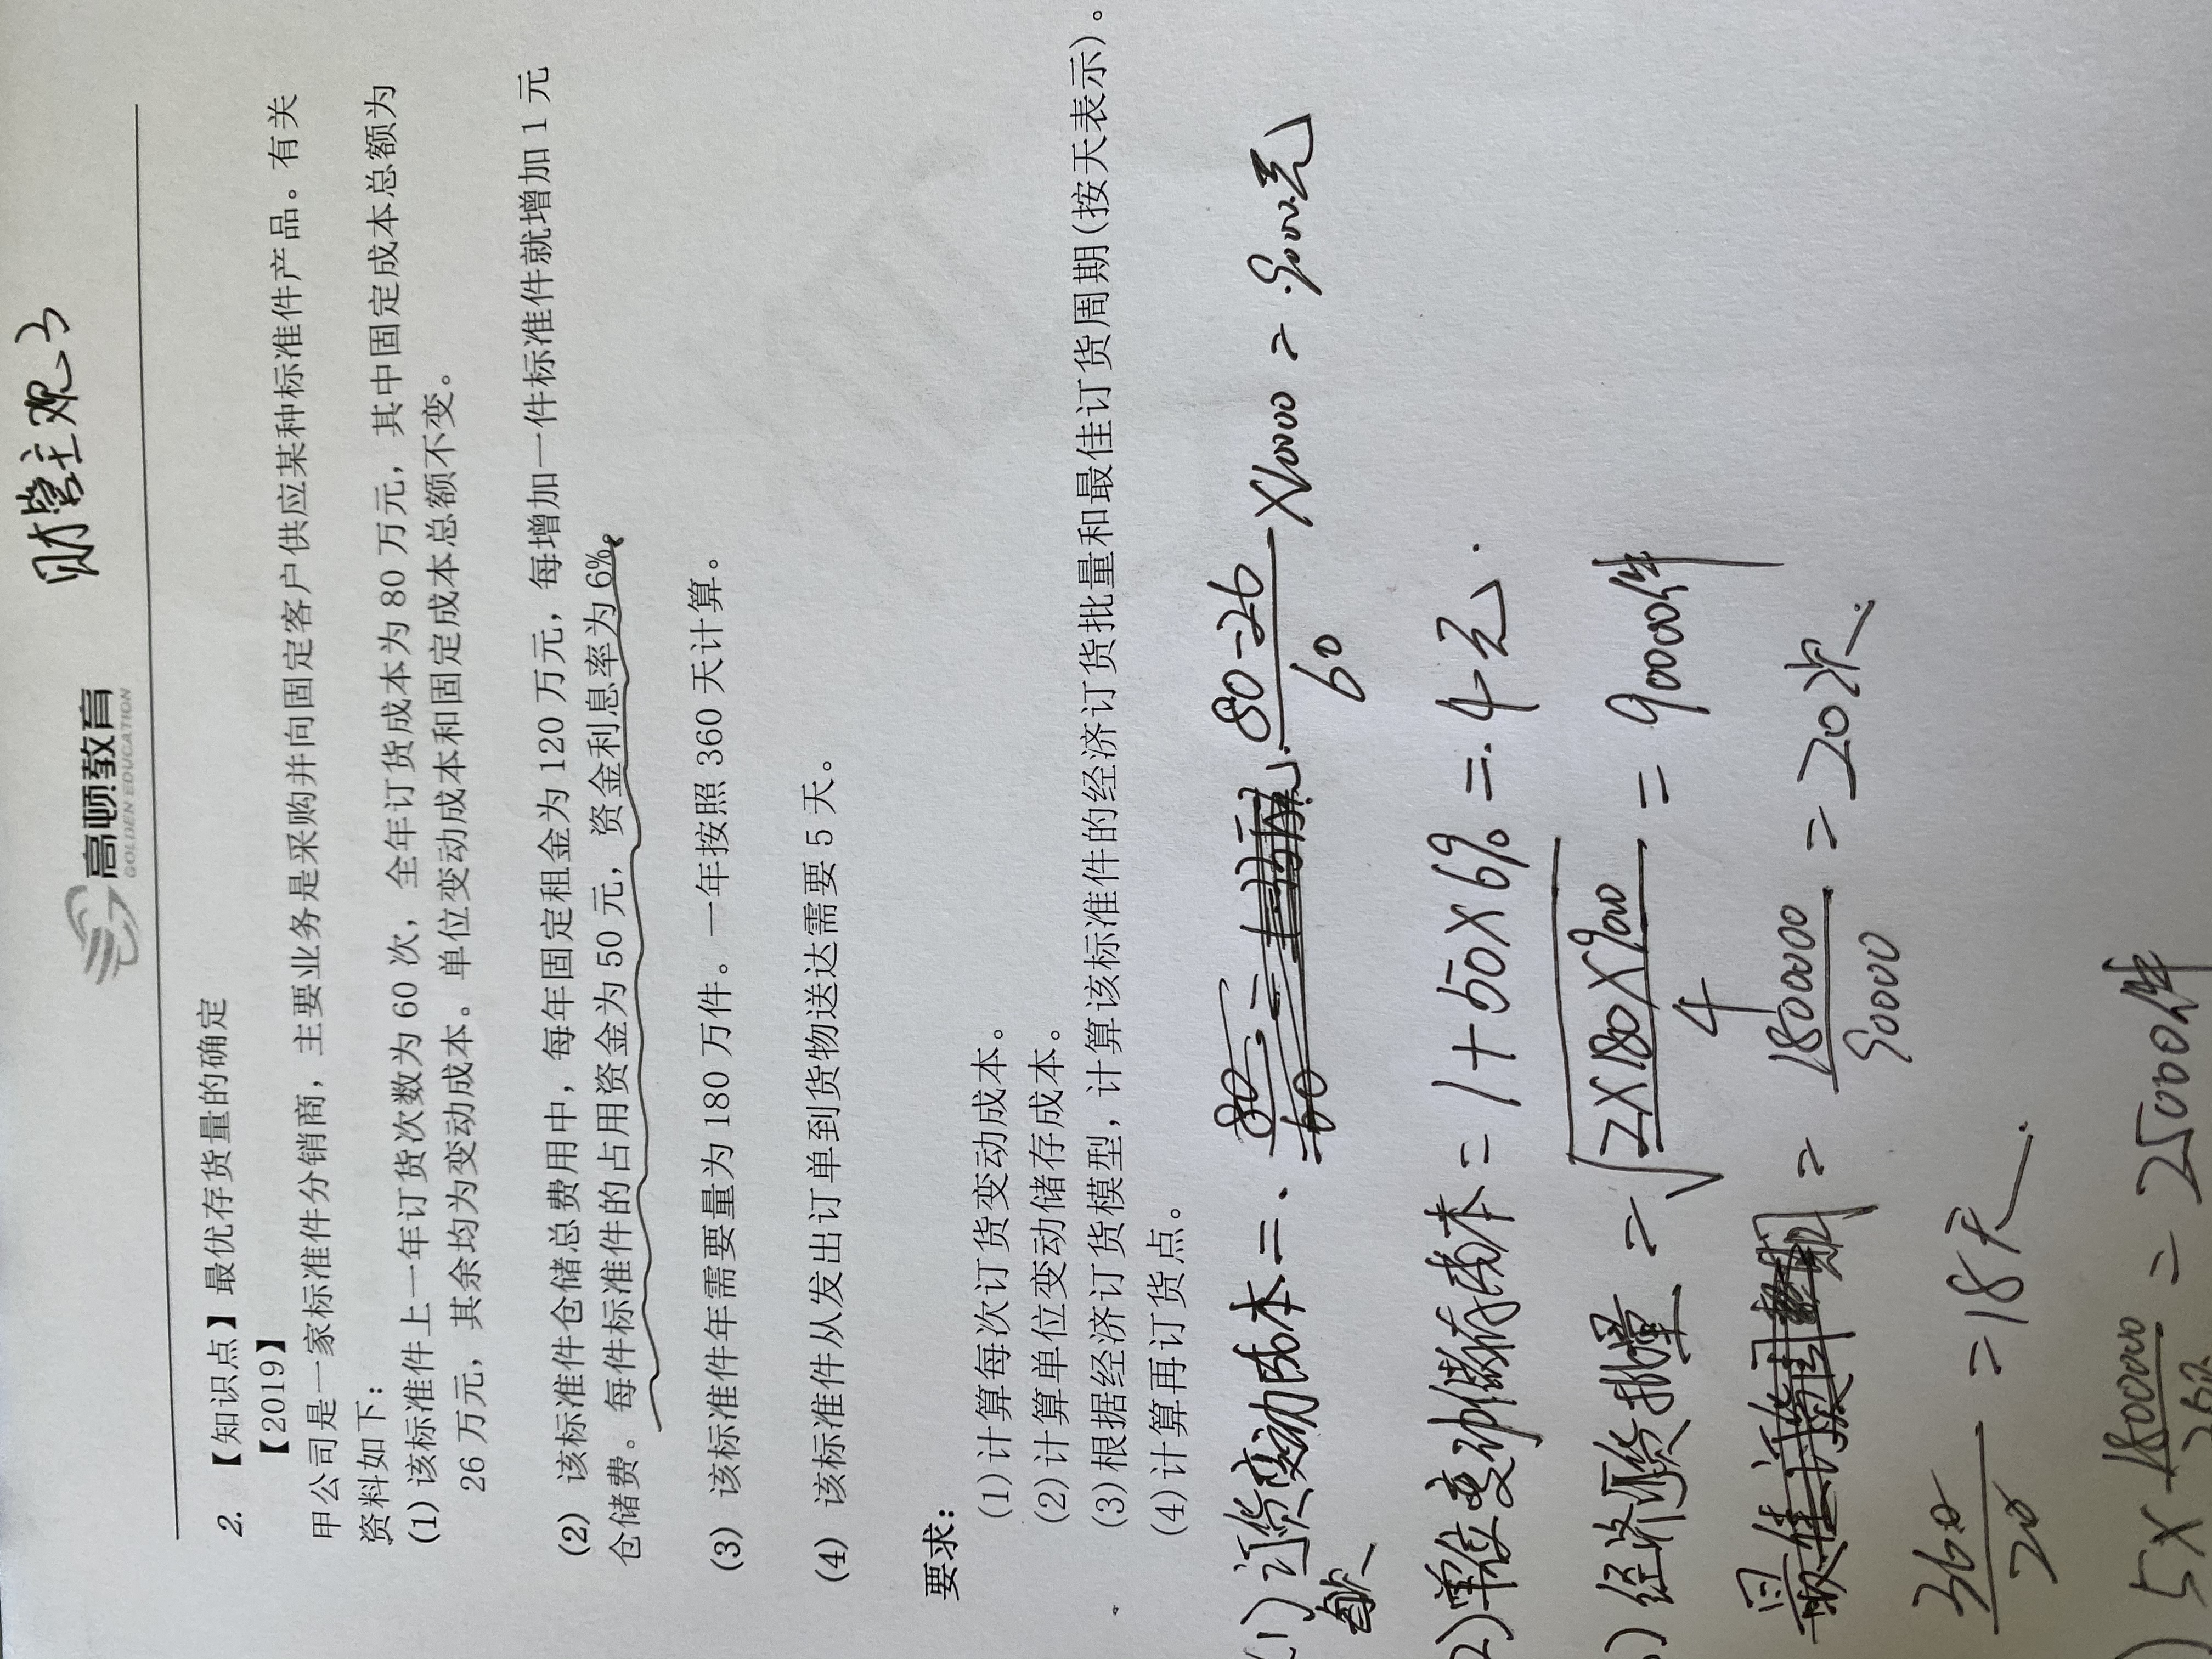 财管主观了
高顿教育
GOLDEN EDUCATION
2. 【知识点】最优存货量的确定
【2019】
甲公司是一家标准件分销商，主要业务是采购并向固定客户供应某种标准件产品。有关
资料如下：
(1) 该标准件上一年订货次数为 60 次，全年订货成本为 80 万元，其中固定成本总额为
26 万元，其余均为变动成本。单位变动成本和固定成本总额不变。
(2) 该标准件仓储总费用中，每年固定租金为 120 万元，每增加一件标准件就增加 1 元
仓储费。每件标准件的占用资金为 50 元，资金利息率为 6%。
(3) 该标准件年需要量为 180 万件。一年按照 360 天计算。
(4) 该标准件从发出订单到货物送达需要 5 天。
要求：
(1) 计算每次订货变动成本。
(2) 计算单位变动储存成本。
(3) 根据经济订货模型，计算该标准件的经济订货批量和最佳订货周期(按天表示)。
(4) 计算再订货点。
(1) 每次订货变动成本 = (80-26)/60 ×10000 = 9000元
2) 单位变动储存成本 = 1+50×6% = 4元
) 经济订货批量 = √(2×180×900/4) = 90000件
= 1800000/90000 = 20次
360/20 = 18天
) 5× 1800000/360 = 25000件